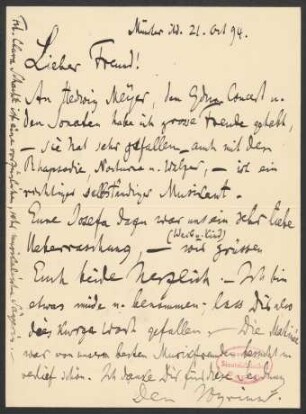 Münster i/W. 21. Oct 94.
Lieber Freund!
An Hedwig Meyer, dem Concert u.
den Sonaten habe ich grosse Freude gehabt,
– sie hat sehr gefallen, auch mit dem
Rhapsodie, Nocturne u. Walzer, – ist ein
tüchtiger selbständiger Musikant.
Eure Josefa dazu war uns ein sehr liebe
Ueberraschung, – wir grüssen
(Weib u. Kind)
Euch beide herzlich. – Ich bin
etwas müde u. benommen; lass Dir also
das kurze Wort gefallen. – Die Matinée
war von unseren besten Musikfreunden besucht u.
verlief schön. Ich danke Dir
Dein
Frl. Clara ist eine vorzügliche, sehr musikalische Sängerin. –